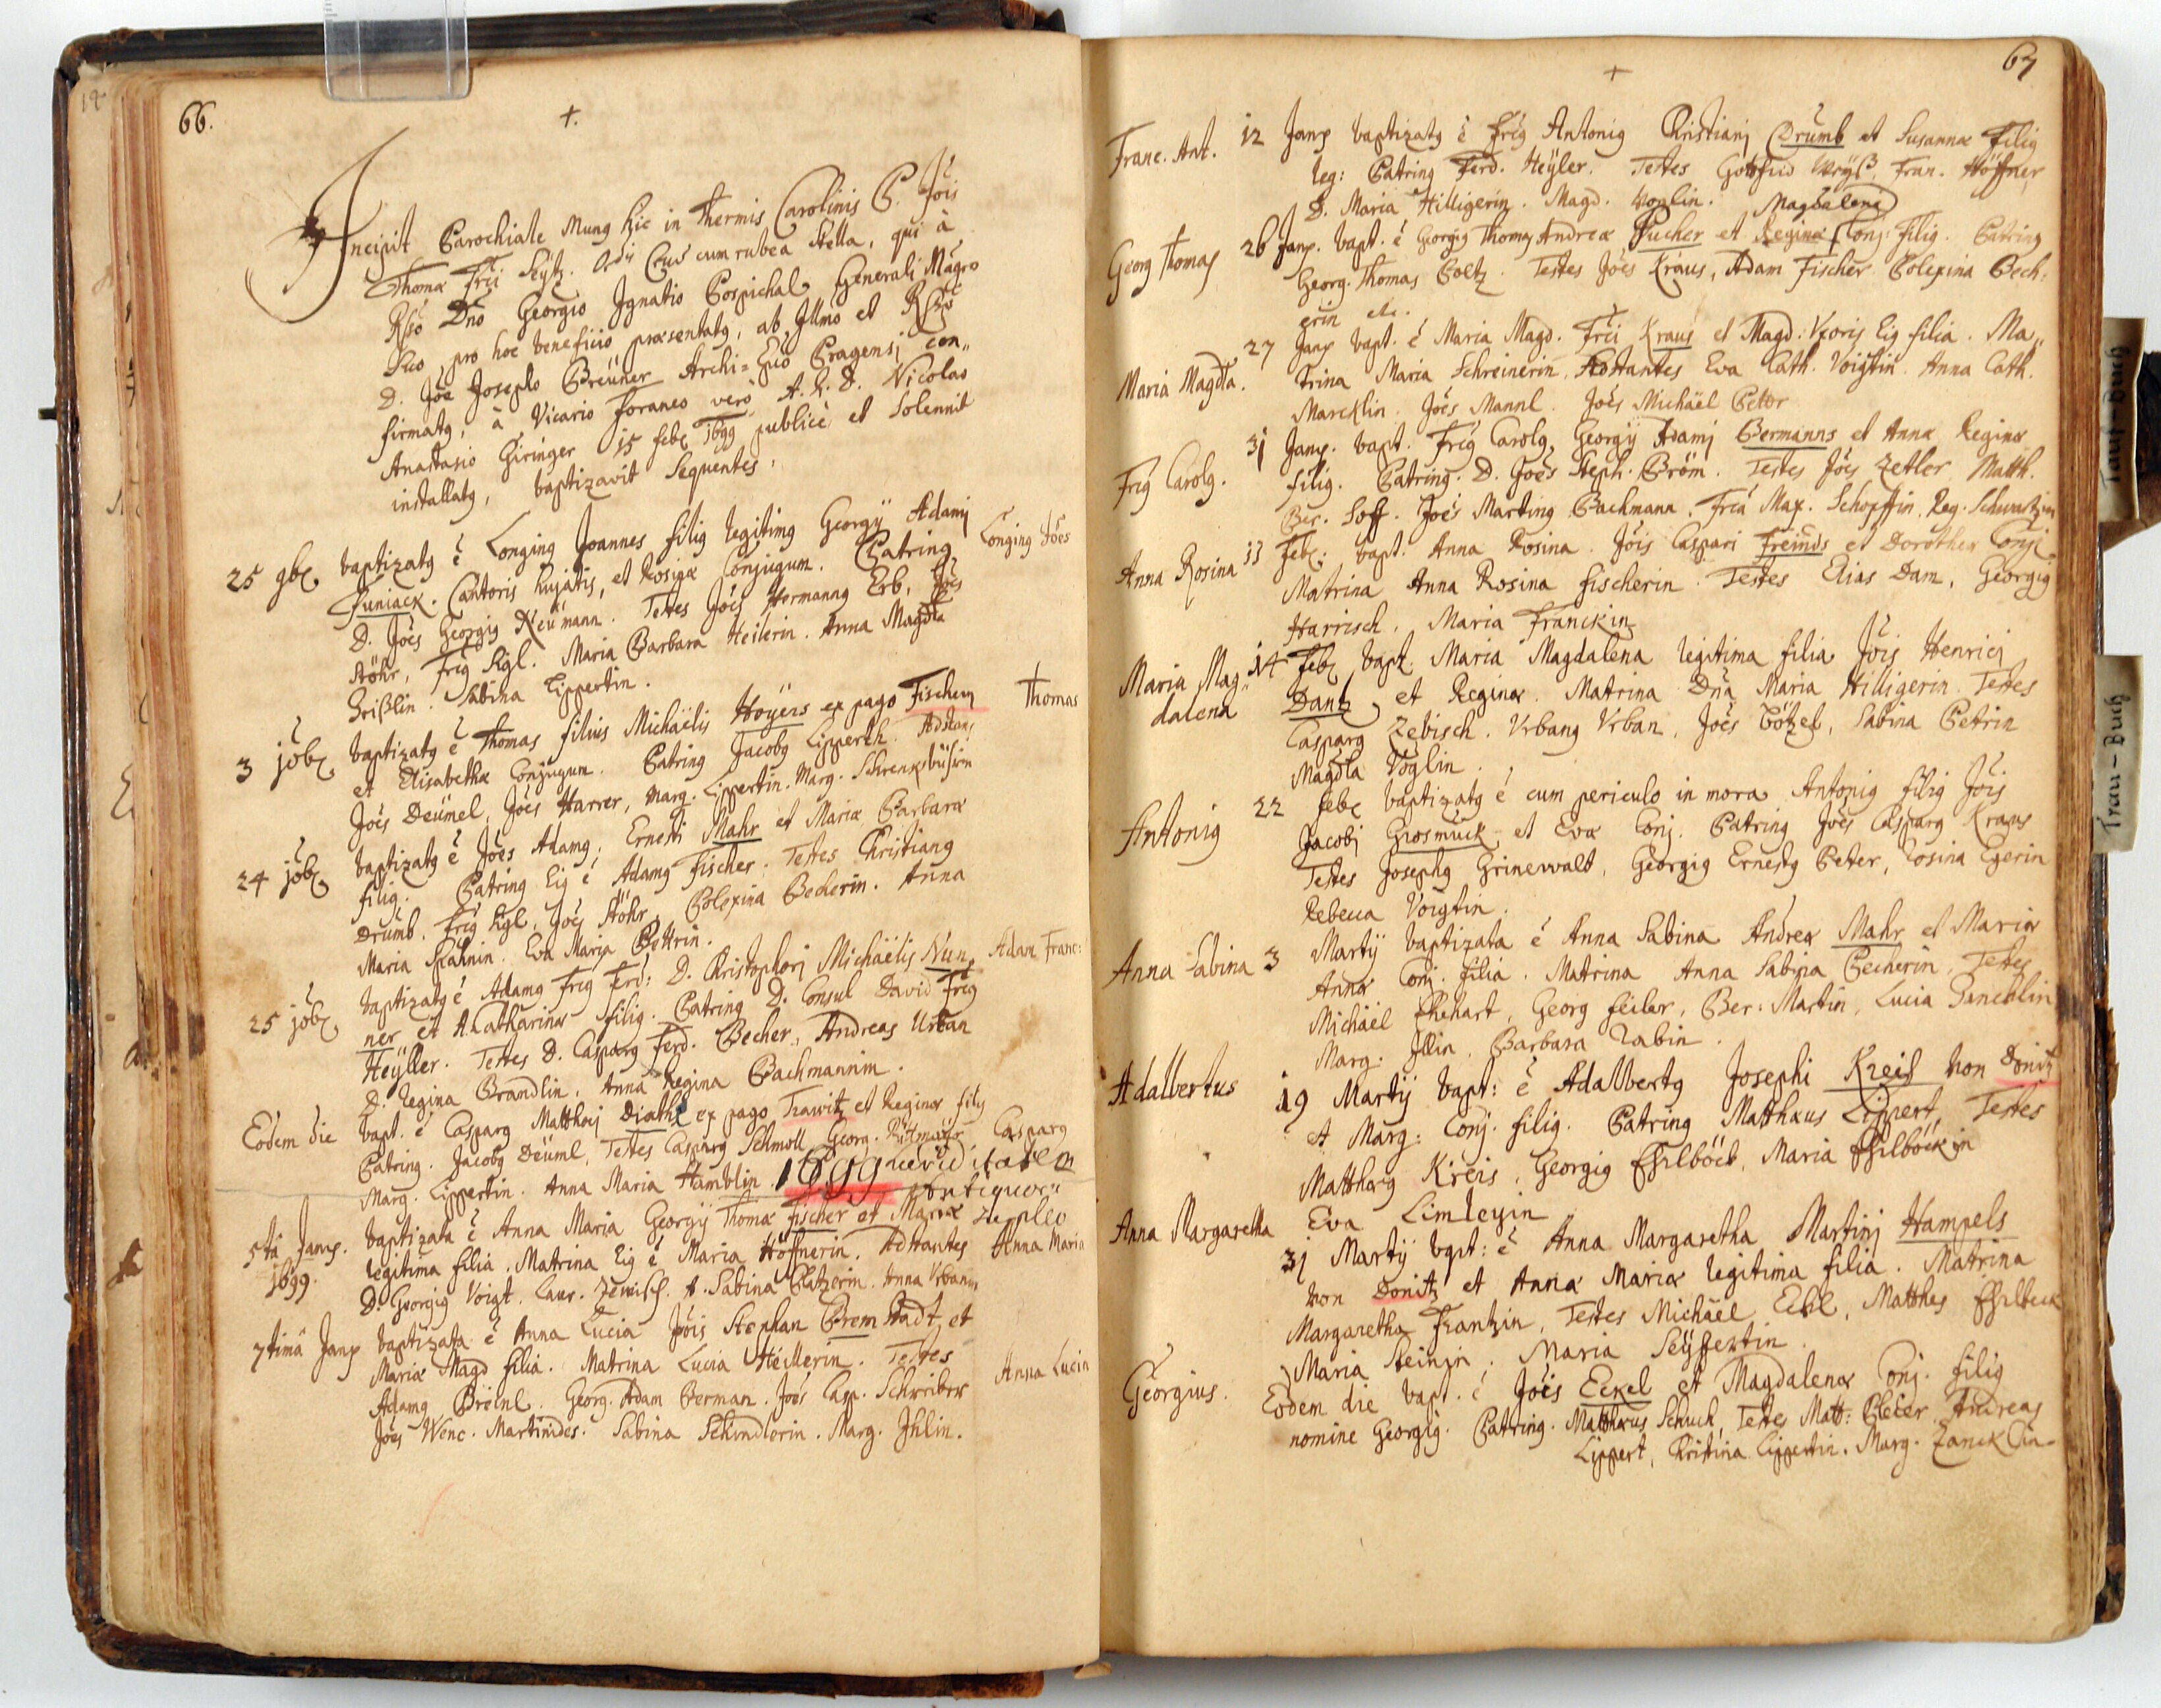 66.
+.
Incipit Parochiale Munq hic in Thermis Carolinis P. Jois
Thomæ Frci Seÿtz. Ordis Cruc cum rubea Stella, qui à
Rsso Dno Georgio Jgnatio Pospichal Generali Magro
Suo pro hoc beneficio præsentatq, ab Jllmo et Rsso
D. Joe Josepho Breüner Archi=Epo Pragensi con„
firmatq, à Vicario foraneo vero A. R. D. Nicolao
Anastasio Giringer 15 feb 1699 publicè et Solennit
installatq, baptizavit Sequentes.
25 9b. baptizatq ē Longinq Joannes filiq legitimq Georgÿ Adami Longinq Joes
Puniack. Cantoris hujatis, et Rosinæ Conjugum. Patrinq
D. Joës Georgiq Neümann. Testes Joës Hermannq Erb, Joës
Stöhr, Frcq Sigl. Maria Barbara Heilerin. Anna Magdla
Grißlin. Sabina Lippertin.
3 10b. baptizatq ē Thomas filius Michaëlis Hoÿers ex pago Fischern Thomas
et Elisabethæ Conjugum. Patrinq Jacobq Lippertt. Adstans
Joës Deümel, Joës Harrer, Marg. Lippertin. Marg.
24 10b. baptizatq ē Joës Adamq, Ernesti Mahr et Mariæ Barbaræ
filiq. Patrinq Eiq ē Adamq Fischer. Testes Christianq
Drumb, Frcq Sigl, Joës Stöhr, Polexina Becherin. Anna
Maria Eva Maria Pettrin.
25 10b. baptizatq ē Adamq Frcq Ferd: D. Christophori Michaëlis Nun„ Adam Franc:
ner et A. Catharinæ filiq. Patrinq D. Consul David Frcq
Heÿller. Testes D. Casparq Ferd. Becher, Andreas Urban
D. Regina Brandlin, Anna Regina Bachmannin.
Eodem die bapt. ē Casparq Matthæi Diathl ex pago Trawitz et Reginæ filiq
Patrinq. Jacobq Deüml, Testes Casparq Schmoll, Georg. Casparq
Marg. Lippertin. Anna Maria Hamblin. 1699
5ta Janq. baptizata ē Anna Maria Georgÿ Thomæ Fischer et Mariæ
1699. legitima filia. Matrina Eiq ē Maria Höffnerin. Adstantes Anna Maria
D. Georgiq Voigt. Laur. Zewisch. A. Sabina Platzerin. Anna Vrbanin
7timâ Janq baptizata ē Anna Lucia Jois Stephan Bremstadt et
Mariæ Magd filia. Matrina Lucia Heillerin. Testes Anna Lucia
Adamq Breinl. Georg. Adam Berman. Joës Casp. Schreiber
Joës Wenc. Martinides. Sabina Schindlerin. Marg. Jhlin.
67
+
Franc. Ant. 12 Janq baptizatq ē Frcq Antoniq Christiani Drumb et Susannæ Filiq
leg: Patrinq Ferd. Heÿler. Testes Gottfrid Weÿß, Fran. Höffner
D. Maria Hilligerin. Magd. Voglin. Magdalena
Georg Thomas 26 Janq. bapt. ē Georgiq Thomas Andreæ Pucher et Reginæ Conj. filiq. Patrinq
Georg. Thomas Poltz. Testes Joës Kraus, Adam Fischer Polexina Bech„
erin etc.
Maria Magdla. 27 Janq bapt. ē Maria Magd. Frci Kraus et Magd: Vxoris Eiq filia. Ma„
trina Maria Schreinerin, Adstantes Eva Cath. Voigtin. Anna Cath.
Marcklin. Joës Mannl. Joës Michaël Petter
Frcq Carolq. 31 Janq. bapt. Frcq Carolq, Georgÿ Adami Bermanns et Annæ Reginæ
filiq. Patrinq. D. Joës Steph. Bröm. Testes Joës Zetler, Matth.
Ber. Soff. Joës Martinq Bachmann, Frca Max. Schopffin. Reg.
Anna Rosina 13 Feb: bapt. Anna Rosina. Jois Caspari Freünds et Dorotheæ Conj.
Matrina Anna Rosina Fischerin. Testes Elias Dam, Georgiq
Harrisch. Maria Franckin
Maria Mag„ 14 Feb bapt. Maria Magdalena legitima filia Jois Henrici
dalena Dantz et Reginæ. Matrina Dna Maria Hilligerin Testes
Casparq Zebisch. Vrbanq Vrban, Joës Götzl, Sabina Petrin
Magdla Voglin.
Antoniq 22 feb baptizatq ē cum periculo in mora Antoniq filiq Jois
Jacobi Grosmück et Evæ Conj. Patrinq Joës Casparq Kraus
Testes Josephq Grinewalt, Georgiq Ernestq Peter, Rosina Egerin
Rebecca Voigtin.
Anna Sabina 3 Martÿ baptizata ē Anna Sabina Andreæ Mahr et Mariæ
Annæ Conj. filia. Matrina Anna Sabina Becherin, Testes
Michaël Ehehart, Georg Heiler, Ber: Martin, Lucia
Marg. Jllin, Barbara Rabin.
Adalbertus 19 Martÿ bapt: ē Adalbertq Josephi Kreis von Donitz
et Marg: Conj. filiq. Patrinq Matthæus Lippert, Testes
Matthæq Kreis, Georgiq Eselböck, Maria Eselböckin
Eva Limleyin
Anna Margaretha 31 Martÿ bapt: ē Anna Margaretha Martini Hampels
von Donitz et Annæ Mariæ legitima filia. Matrina
Margaretha Frantzin, Testes Michaël Eckl, Matthes Eselbeck
Maria Steinin. Maria Seÿfertin.
Georgius. Eodem die bapt. ē Jois Eckel et Magdalenæ Conj. filiq
nomine Georgiq. Patrinq. Matthæus Schuch, Testes Matt: Andreas
Lippert, Christina Lippertin. Marg. Zancklin.
Tauf-Buch
Trau-Buch